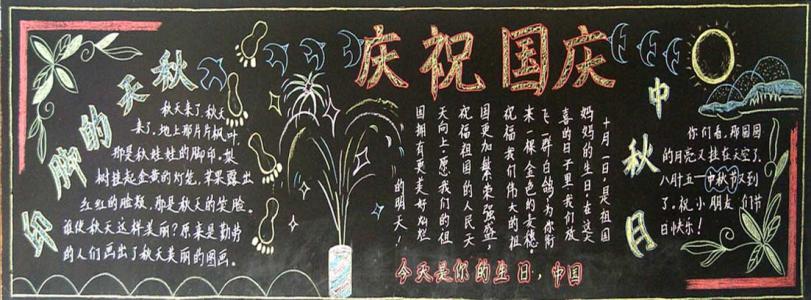 庆祝国庆
秋天的脚印
秋天来了,秋天
来了,地上那片片枫叶,
那是秋娃娃的脚印。梨
树挂起金黄的灯笼,苹果露出
红红的脸颊,那是秋天的笑脸。
谁使秋天这样美丽?原来是勤劳
的人们画出了秋天美丽的图画。
十月一日是祖国
妈妈的生日,在这天
喜的日子里,我们放
飞一群白鸽,为你衔
来一棵金色的麦穗。
祝福我们伟大的祖
国更加繁荣强盛,
祝福祖国的人民天
天向上,愿我们的祖
国拥有更美好灿烂
的明天!
今天是你的生日,中国
中秋月
你们看,那圆圆
的月亮又挂在天空了,
八月十五——中秋节又到
了,祝小朋友们节
日快乐!